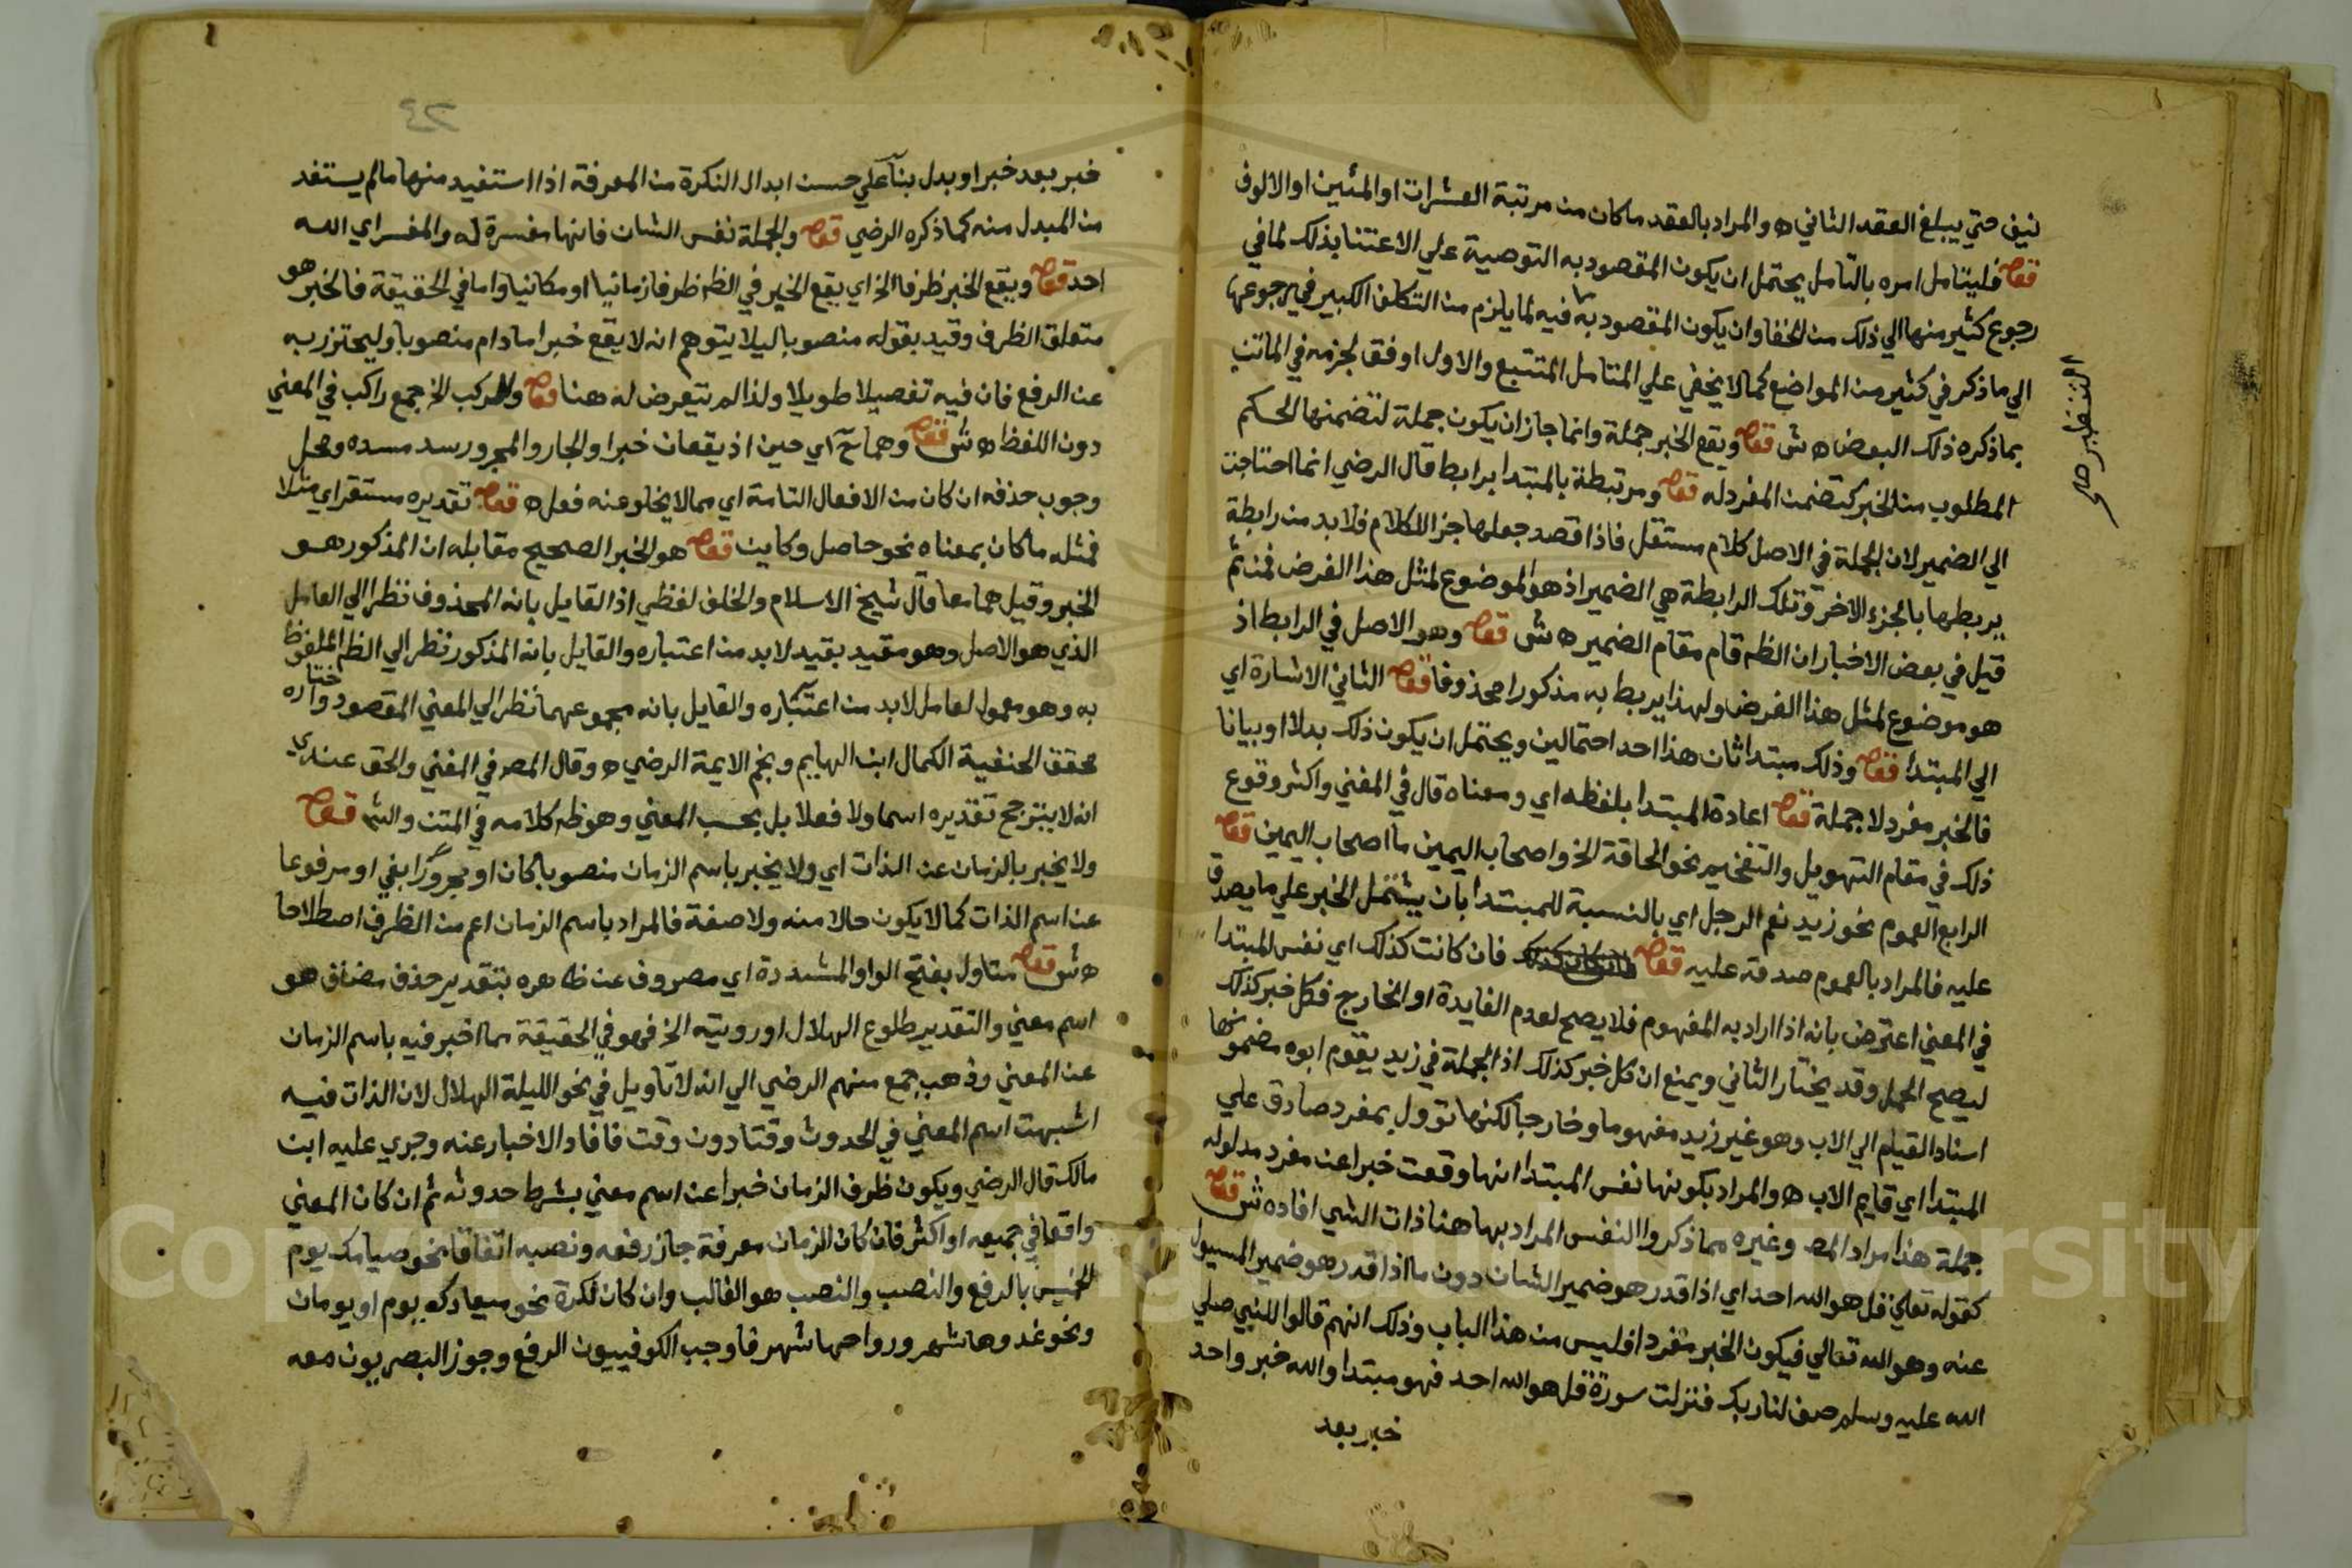 نيف حتي يبلغ العقد الثاني ه والمراد بالعقد ماكان من مرتبة العشرات او المئين او الالوف
قوله فليتامل امره بالتامل يحتمل ان يكون المقصود به التوصية علي الاعتنا بذلك لما في
رجوع كثير منها الي ذلك من الخفا وان يكون المقصود به فيه لما يلزم من التكلف الكبير في رجوعها
الي ما ذكر في كثير من المواضع كما لا يخفي علي المتامل المتتبع والاول اوفق لجزمه في الماتن
بما ذكره ذلك البعض ه ش قوله ويقع الخبر جملة وانما جاز ان يكون جملة لتضمنها الحكم
المطلوب من الخبر كتضمن المفرد له قوله ومرتبطة بالمبتدا برابط قال الرضي انما احتاجت
الي الضمير لان الجملة في الاصل كلام مستقل فاذا قصد جعلها جزا للكلام فلا بد من رابطة
يربطها بالجزء الاخر وتلك الرابطة هي الضمير اذ هو الموضوع لمثل هذا الغرض فمن ثم
قيل في بعض الاخبار ان الظه قام مقام الضمير ه ش قوله وهو الاصل في الرابط اذ
هو موضوع لمثل هذا الغرض ولهذا يربط به مذكورا ومحذوفا قوله الثاني الاشارة اي
الي المبتدا قوله وذلك مبتدا ثان هذا احد احتمالين ويحتمل ان يكون ذلك بدلا او بيانا
فالخبر مفرد لا جملة قوله اعادة المبتدا بلفظه اي ومعناه قال في المغني واكثر وقوع
ذلك في مقام التهويل والتفخيم نحو الحاقة الخ واصحاب اليمين ما اصحاب اليمين قوله
الرابع العموم نحو زيد نعم الرجل اي بالنسبة للمبتدا بان يشتمل الخبر علي ما يصدق
عليه فالمراد بالعموم صدقه عليه قوله فان كانت كذلك اي نفس المبتدا
في المعني اعترض بانه اذا اراد به المفهوم فلا يصح لعدم الفايدة او الخارج فكل خبر كذلك
ليصح الحمل وقد يختار الثاني ويمنع ان كل خبر كذلك اذ الجملة في زيد يقوم ابوه مضمونها
اسناد القيام الي الاب وهو غير زيد مفهوما وخارجا لكنها تؤول بمفرد صادق علي
المبتدا اي قايم الاب ه والمراد بكونها نفس المبتدا انها وقعت خبرا عن مفرد مدلوله
جملة هذا مراد المص وغيره مما ذكروا النفس المراد بها هنا ذات الشي افاده ش قوله
كقوله تعالي قل هو الله احد اي اذا قدر هو ضمير الشان دون ما اذا قدر هو ضمير المسيول
عنه وهو الله تعالي فيكون الخبر مفردا فليس من هذا الباب وذلك انهم قالوا للنبي صلي
الله عليه وسلم صف لنا ربك فنزلت سورة قل هو الله احد فهو مبتدا والله خبر واحد
خبر بعد
التنظير صح
٤٢
خبر بعد خبر او بدل بنآ علي حسن ابدال النكرة من المعرفة اذا استفيد منها مالم يستفد
من المبدل منه كما ذكره الرضي قوله والجملة نفس الشان فانها مفسرة له والمفسر اي الله
احد قوله ويقع الخبر ظرفا الخ اي يقع الخبر في الظه ظرفا زمانيا او مكانيا واما في الحقيقة فالخبر هو
متعلق الظرف وقيد بقوله منصوبا ليلا يتوهم انه لا يقع خبرا مادام منصوبا وليحترز به
عن الرفع فان فيه تفصيلا طويلا ولذا لم يتعرض له هنا قوله والركب الخ جمع راكب في المعني
دون اللفظ ه ش قوله وهما ح اي حين اذ يقعان خبرا والجار والمجرور سد مسده ومحل
وجوب حذفه ان كان من الافعال التامة اي مما لا يخلو عنه فعل ه قوله تقديره مستقر اي مثلا
فمثله ما كان بمعناه نحو حاصل وكاين قوله هو الخبر الصحيح مقابله ان المذكور هو
الخبر وقيل هما معا قال شيخ الاسلام والخلف لفظي اذ القايل بانه المحذوف نظر الي العامل
الذي هو الاصل وهو مقيد بقيد لا بد من اعتباره والقايل بانه المذكور نظر الي الظه الملفوظ
به وهو معمول لعامل لابد من اعتباره والقايل بانه مجموعهما نظر الي المعني المقصود واختاره
محقق الحنفية الكمال ابن الهايم ونجم الايمة الرضي ه وقال المص في المغني والحق عندي
انه لا يترجح تقديره اسما ولا فعلا بل بحسب المعني وهو ظه كلامه في المتن والشر قوله
ولا يخبر بالزمان عن الذات اي ولا يخبر باسم الزمان منصوبا كان او مجرورا بفي او مرفوعا
عن اسم الذات كما لا يكون حالا منه ولا صفة فالمراد باسم الزمان اعم من الظرف اصطلاحا
ه ش قوله متاول بفتح الواو المشددة اي مصروف عن ظاهره بتقدير حذف مضاف هو
اسم معني والتقدير طلوع الهلال او رويته الخ فهو في الحقيقة مما اخبر فيه باسم الزمان
عن المعني وذهب جمع منهم الرضي الي انه لا تاويل في نحو الليلة الهلال لان الذات فيه
اشبهت اسم المعني في الحدوث وقتا دون وقت فافاد الاخبار عنه وجري عليه ابن
مالك قال الرضي ويكون ظرف الزمان خبرا عن اسم معني بشرط حدوثه ثم ان كان المعني
واقعا في جميعه او اكثره فان كان الزمان معرفة جاز رفعه ونصبه اتفاقا نحو صيامك يوم
الخميس بالرفع والنصب والنصب هو الغالب وان كان نكرة نحو ميعادك يوم او يومان
ونحو غدوها شهر ورواحها شهر فاوجب الكوفييون الرفع وجوز البصريون معه
Copyright © King University